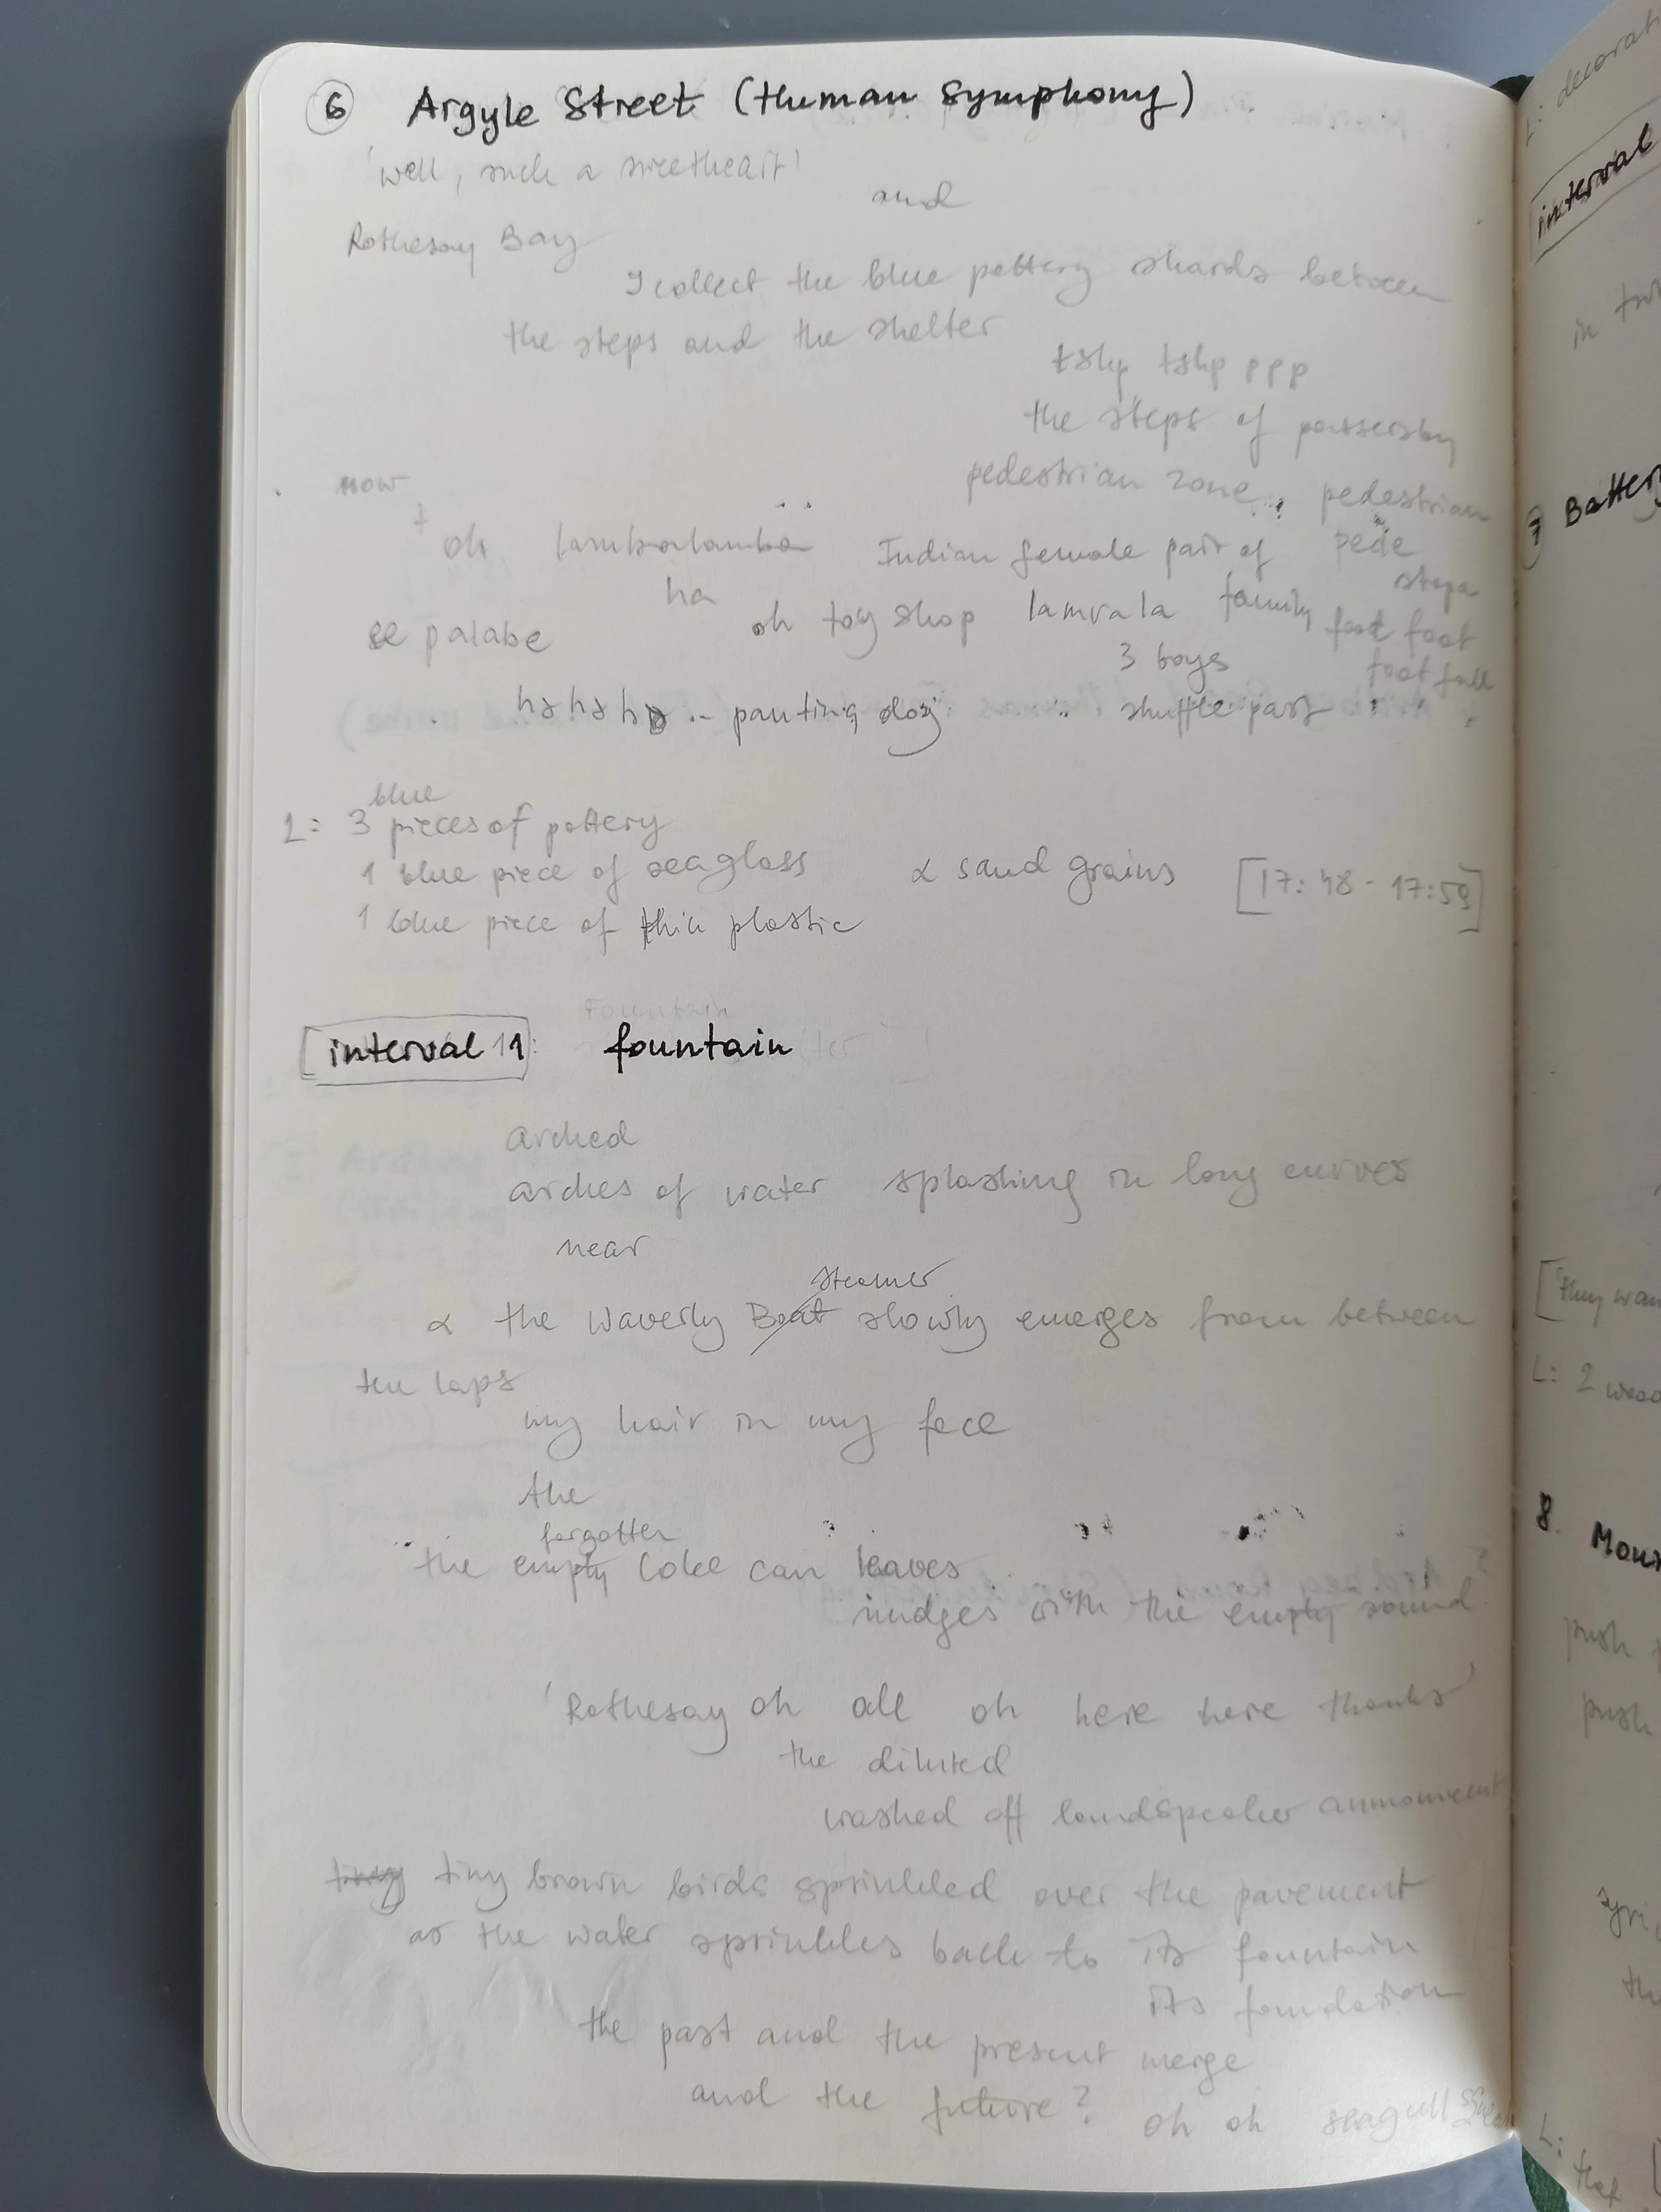 6 Argyle Street (Human Symphony)
'well, such a sweetheart'
and
Rothesay Bay
I collect the blue pottery shards between
the steps and the shelter
tshp tshp ppp
the steps of passersby
pedestrian zone, pedestrian
now
oh lambalamba Indian female pair of pede
steps
ha
oh toy shop lamvala family foot foot
se palabe
3 boys
footfall
hshshs .. panting dog .. shuffle past
blue
L: 3 pieces of pottery
1 blue piece of seaglass & sand grains [17:48 - 17:59]
1 blue piece of thin plastic
Fountain
interval 11: fountain
arched
arches of water splashing in long curves
near
steamer
& the Waverly Boat slowly emerges from between
the laps
my hair in my face
the
forgotten
the empty Coke can leaves
nudges with the empty sound
'Rothesay oh all oh here here thanks'
the diluted
washed off loudspeaker announcent
tiny brown birds sprinkled over the pavement
as the water sprinkles back to its fountain
its foundation
the past and the present merge
and the future? oh oh seagull
interval
in
7 Batter
["they wan
L: 2 wood
8.
push
push
L:
that